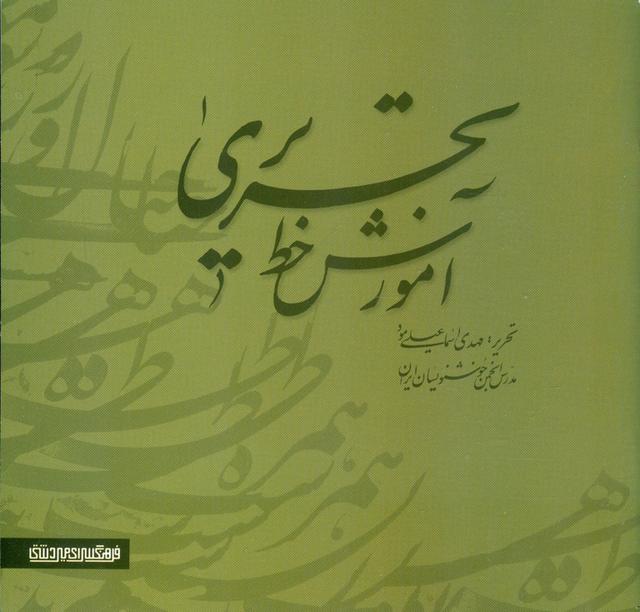 آموزش خط
تحریری
تحریر: مهدی اسماعیلی مود
مدرس انجمن خوشنویسان ایران
فرهنگسرای میردشتی